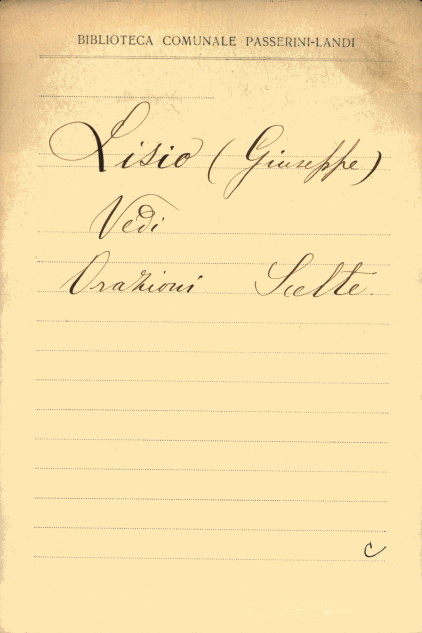 BIBLIOTECA COMUNALE PASSERINI-LANDI
Lisio (Giuseppe)
Vedi
Orazioni Scelte.
C